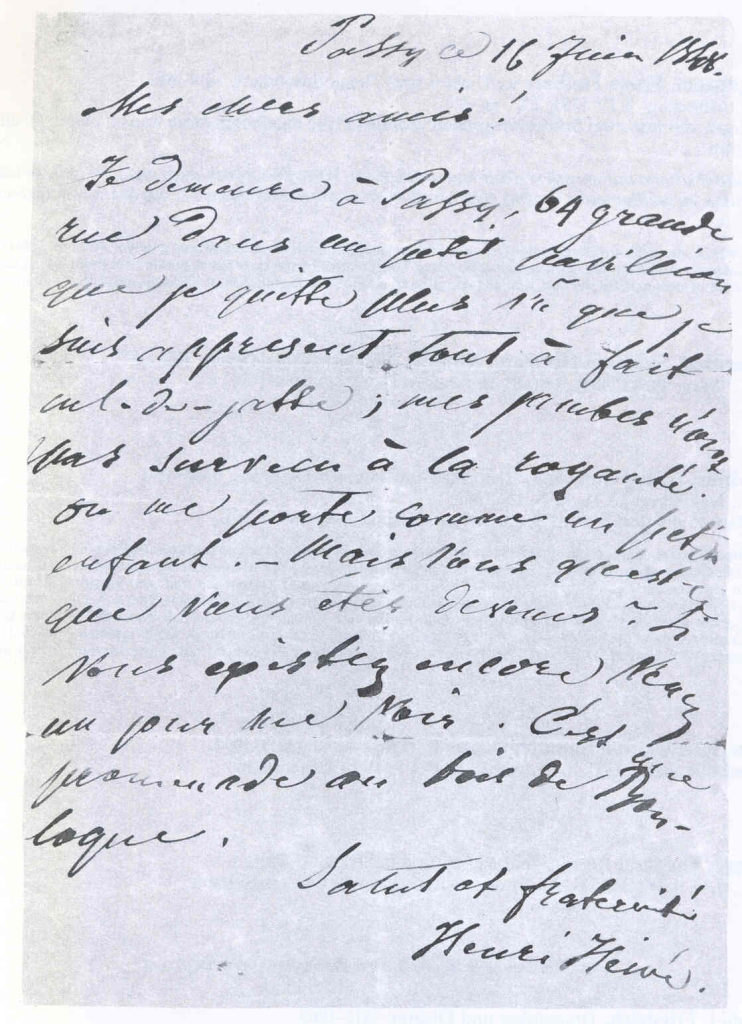 Passy ce 16 Juin 1848.
Mes chers amis!
Je demeure à Passy, 64 grande
rue, dans un petit pavillion
que je quitte plus vû que je
suis appresent tout à fait
cul-de-jatte; mes jambes n'ont
pas survecu à la royauté.
on me porte comme un petit
enfant. — Mais vous qu'est-ce
que vous étes devenus? Si
vous existez encore venez
un jour me voir. C'est une
promenade au bois de Bou-
logne.
Salut et fraternité
Henri Heine.